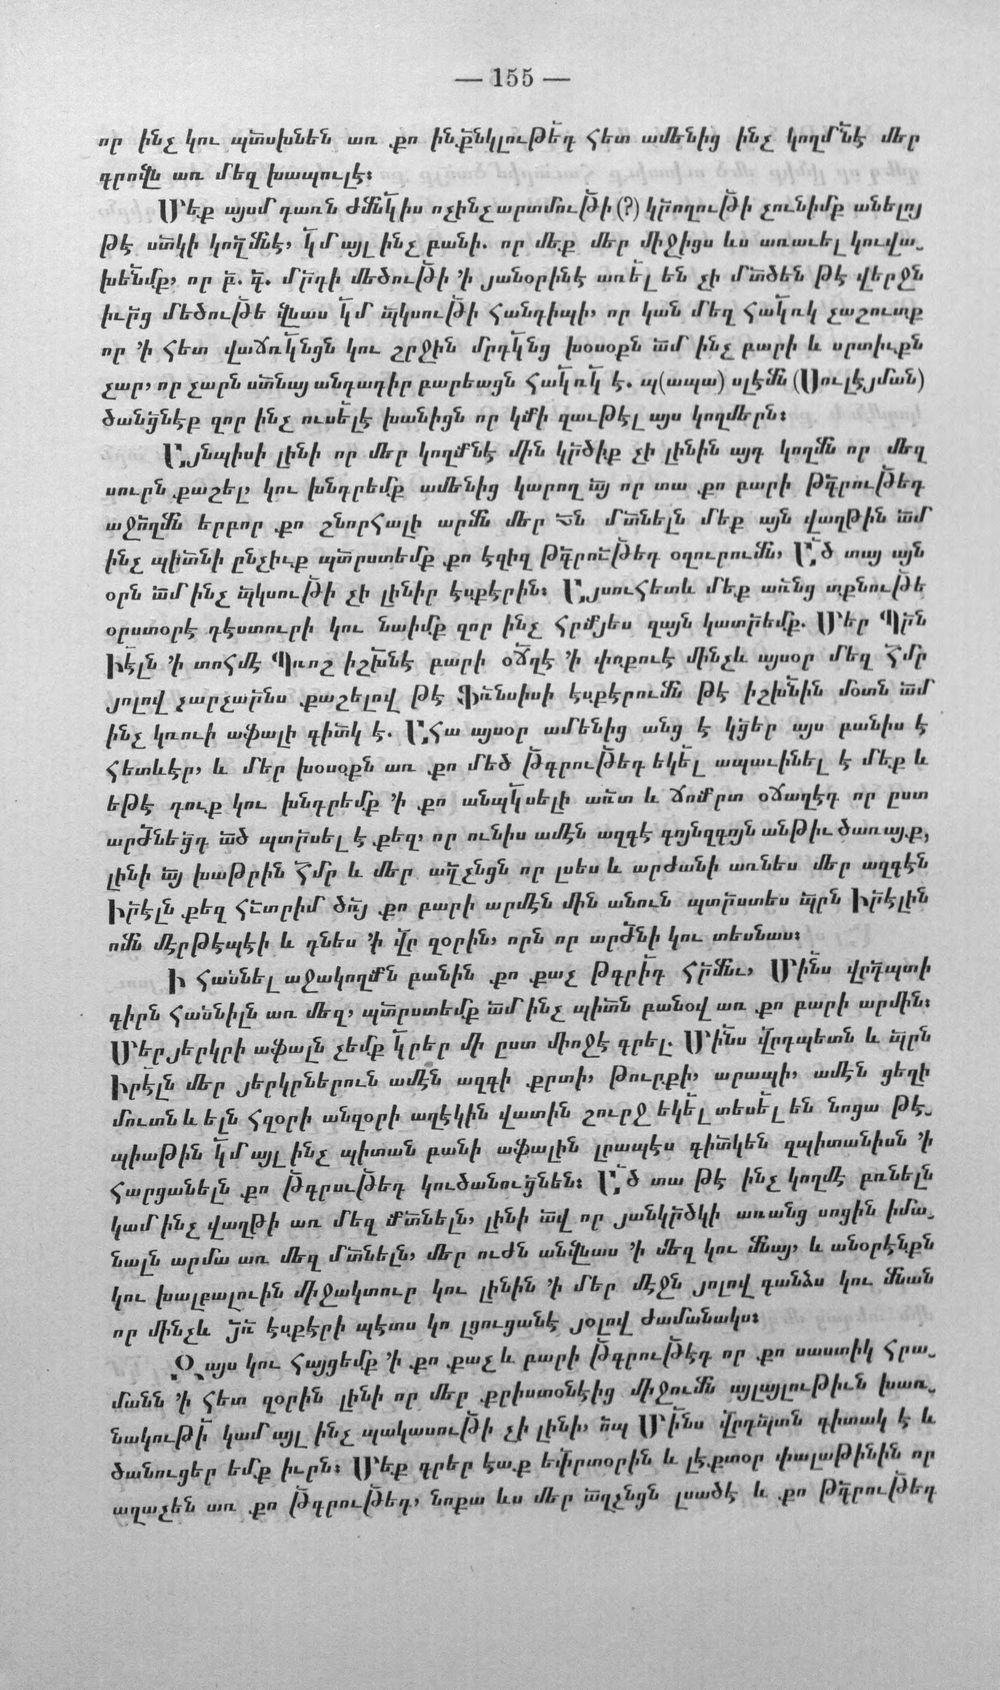 — 155 —
որ ինչ կու պտսխնեն առ քո ինքնկլութեդ հետ ամենից ինչ կողմնէ մեր
գրովն առ մեզ խապուլէ։
Մեք այսմ դառն ժմնկիս ոչինչ արտմութի (?) կրողութի չունիմք անելոյ
թէ սոկի կողմնէ, կմ այլ ինչ բանի. որ մեք մեր միջիցս ևս առաւել կուվա֊
խենմք, որ բ. դ. մրդի մեծութի ՚ի յանօրինէ առել են չի մտծեն թէ վերջն
իւրց մեծութե վնաս կմ պկսութի հանդիպի, որ կան մեղ հակռկ չաշուտք
որ ՚ի հետ վաճռկնցն կու շրջին մրդկնց խօսօքն ամ ինչ բարի և սրտիւքն
չար, որ չարն ստնայ անդադիր բարեացն հակռկ է. պ(ապա) սլէմն (Սուլէյման)
ծանցնէք զոր ինչ ուսելէ խանիցն որ կմի զաւթէլ այս կողմերն։
Այնպիսի լինի որ մեր կողմնէ մին կրծիք չի լինին այդ կողմն որ մեզ
սուրն քաշել, կու խնդրեմք ամենից կարող այ որ տա քո բարի թգրութեդ
աջողմն երբոր քո շնորհալի արմն մեր տն մտնելն մեք այն վաղթին ամ
ինչ պիտնի ընչիւք պտրստեմք քո էզիզ թգրութեդ օզուրումն, Ած տայ այն
օրն ամ ինչ պկսութի չի լինիր էսքէրին։ Այսուհետև մեք առնց տքնութե
օրստօրէ դէստուրի կու նաիմք զոր ինչ հրմյես զայն կատրեմք. Մեր Պրն
Իէլն ՚ի տոհմէ Պռոշ իշխնէ բարի օճղէ ՚ի փոքուէ մինչև այսօր մեզ հմր
յոլով չարչարնս քաշելով թէ Ֆրնսիսի էսքէրումն թէ իշխնին մօտն ամ
ինչ կռուի աֆալի գիտկ է. Ահա այսօր ամենից անց է կցեր այս բանիս է
հետևէր, և մեր խօսօքն առ քո մեծ թգրութեդ եկել ապաւինել է մեք և
եթէ դուք կու խնդրեմք ՚ի քո անպկսելի առտ և ճոմրտ օճաղէդ որ ըստ
արժնեցդ ած պտրսել է քեզ, որ ունիս ամէն ազգէ գոյնզգոյն անթիւ ծառայք,
լինի այ խաթրին հմր և մեր աղչնցն որ լսես և արժանի առնես մեր ազգէն
Իրէլն քեզ հէտրիմ ծռյ քո բարի արմէն մին անուն պտրստես պրն Իրէլին
ոմն մէրթէպէի և դնես ՚ի վր զօրին, որն որ արժնի կու տեսնաս։
Ի հասնել աջակողմն բանին քո քաչ թգրիդ հրմնւ, Մինս վրդպտի
գիրն հասնիլն առ մեզ, պտրստեմք ամ ինչ պիտն բանօվ առ քո բարի արմին։
Մեր յերկրի աֆալն չեմք կրեր մի ըստ միոջէ գրել. Մինս վրդպետն և պրն
Իրէլն մեր յերկրներուն ամէն ազգի քրտի, թուրքի, արապի, ամէն ցեղի
մուտն և ելն հզօրի անզօրի աղէկին վատին շուրջ եկել տեսել են նոցա թէ֊
պիաթին կմ այլ ինչ պիտան բանի աֆալին լրապէս գիտկեն զպիտանիսն ՚ի
հարցանելն քո թգրսւթեդ կուծանուցնեն։ Ած տա թէ ինչ կողմէ բռնելն
կամ ինչ վաղթի առ մեզ մտնելն, լինի ավ որ յանկրծկի առանց սոցին իմա֊
նալն արմա առ մեզ մտնելն, մեր ուժն անվնաս ՚ի մեզ կու մնայ, և անօրէնքն
կու խալբալուին միջակտուր կու լինին ՚ի մեր մէջն յոլով գանձս կու մնան
որ մինչև էսքէրի պէտս կո լցուցանէ յօլով ժամանակս։
Զայս կու հայցեմք ՚ի քո քաչ և բարի թգրութէդ որ քո սաստիկ հրա֊
մանն ՚ի հետ զօրին լինի որ մեր քրիստօնէից միջումն այլայլութիւն խառ֊
նակութի կամ այլ ինչ պակասութի չի լինի, ոպ Մինս վրդպտն գիտակ է և
ծանուցեր եմք իւրն։ Մեք գրեր էաք եփրտօրին և լէքտօր փալաթինին որ
աղաչեն առ քո թգրութեդ, նոքա ևս մեր աղչնցն լսածէ և քո թգրութեդ